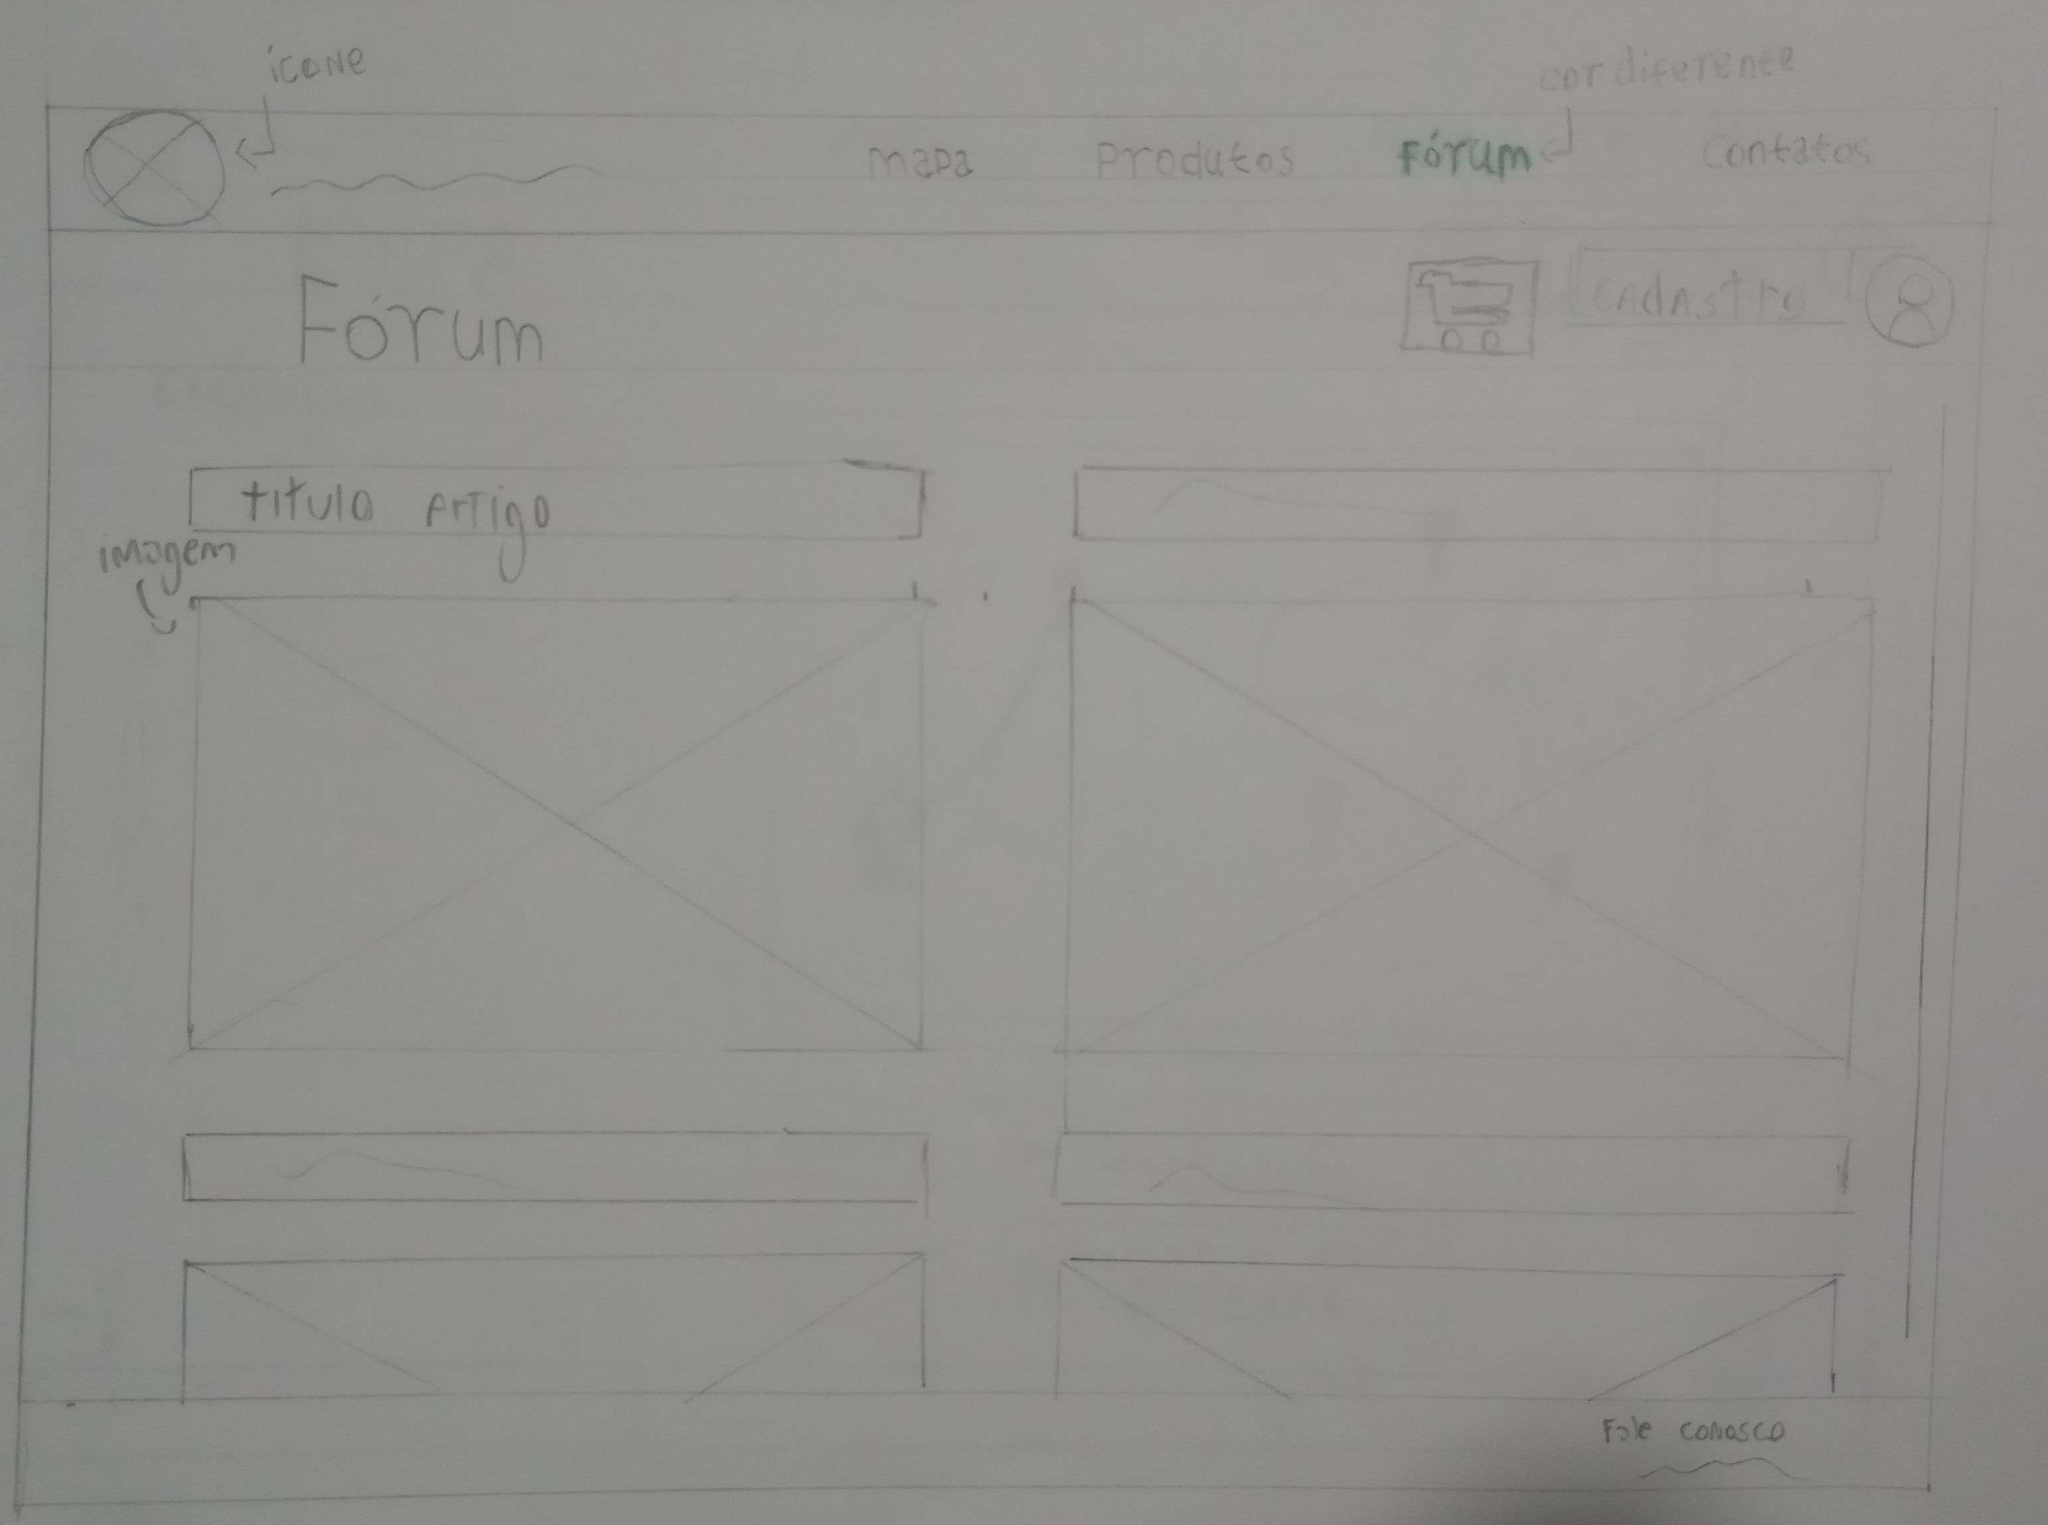 ícone
cor diferente
mapa Produtos Fórum Contatos
Fórum
CADAStro
titulo Artigo
imagem
Fale conosco